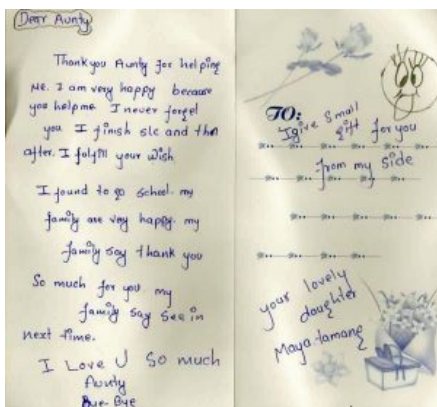 Dear Aunty
Thank you Aunty for helping
me. I am very happy because
you help me I never forget
you I finish slc and then
after. I folfill your wish
I found to go school. my
family are very happy. my
family say thank you
So much for you. my
family say see in
next time.
I Love U So much
Aunty
Bye-Bye
TO:
I give small
gift for you
from my side
your lovely
daughter
Maya-tamang